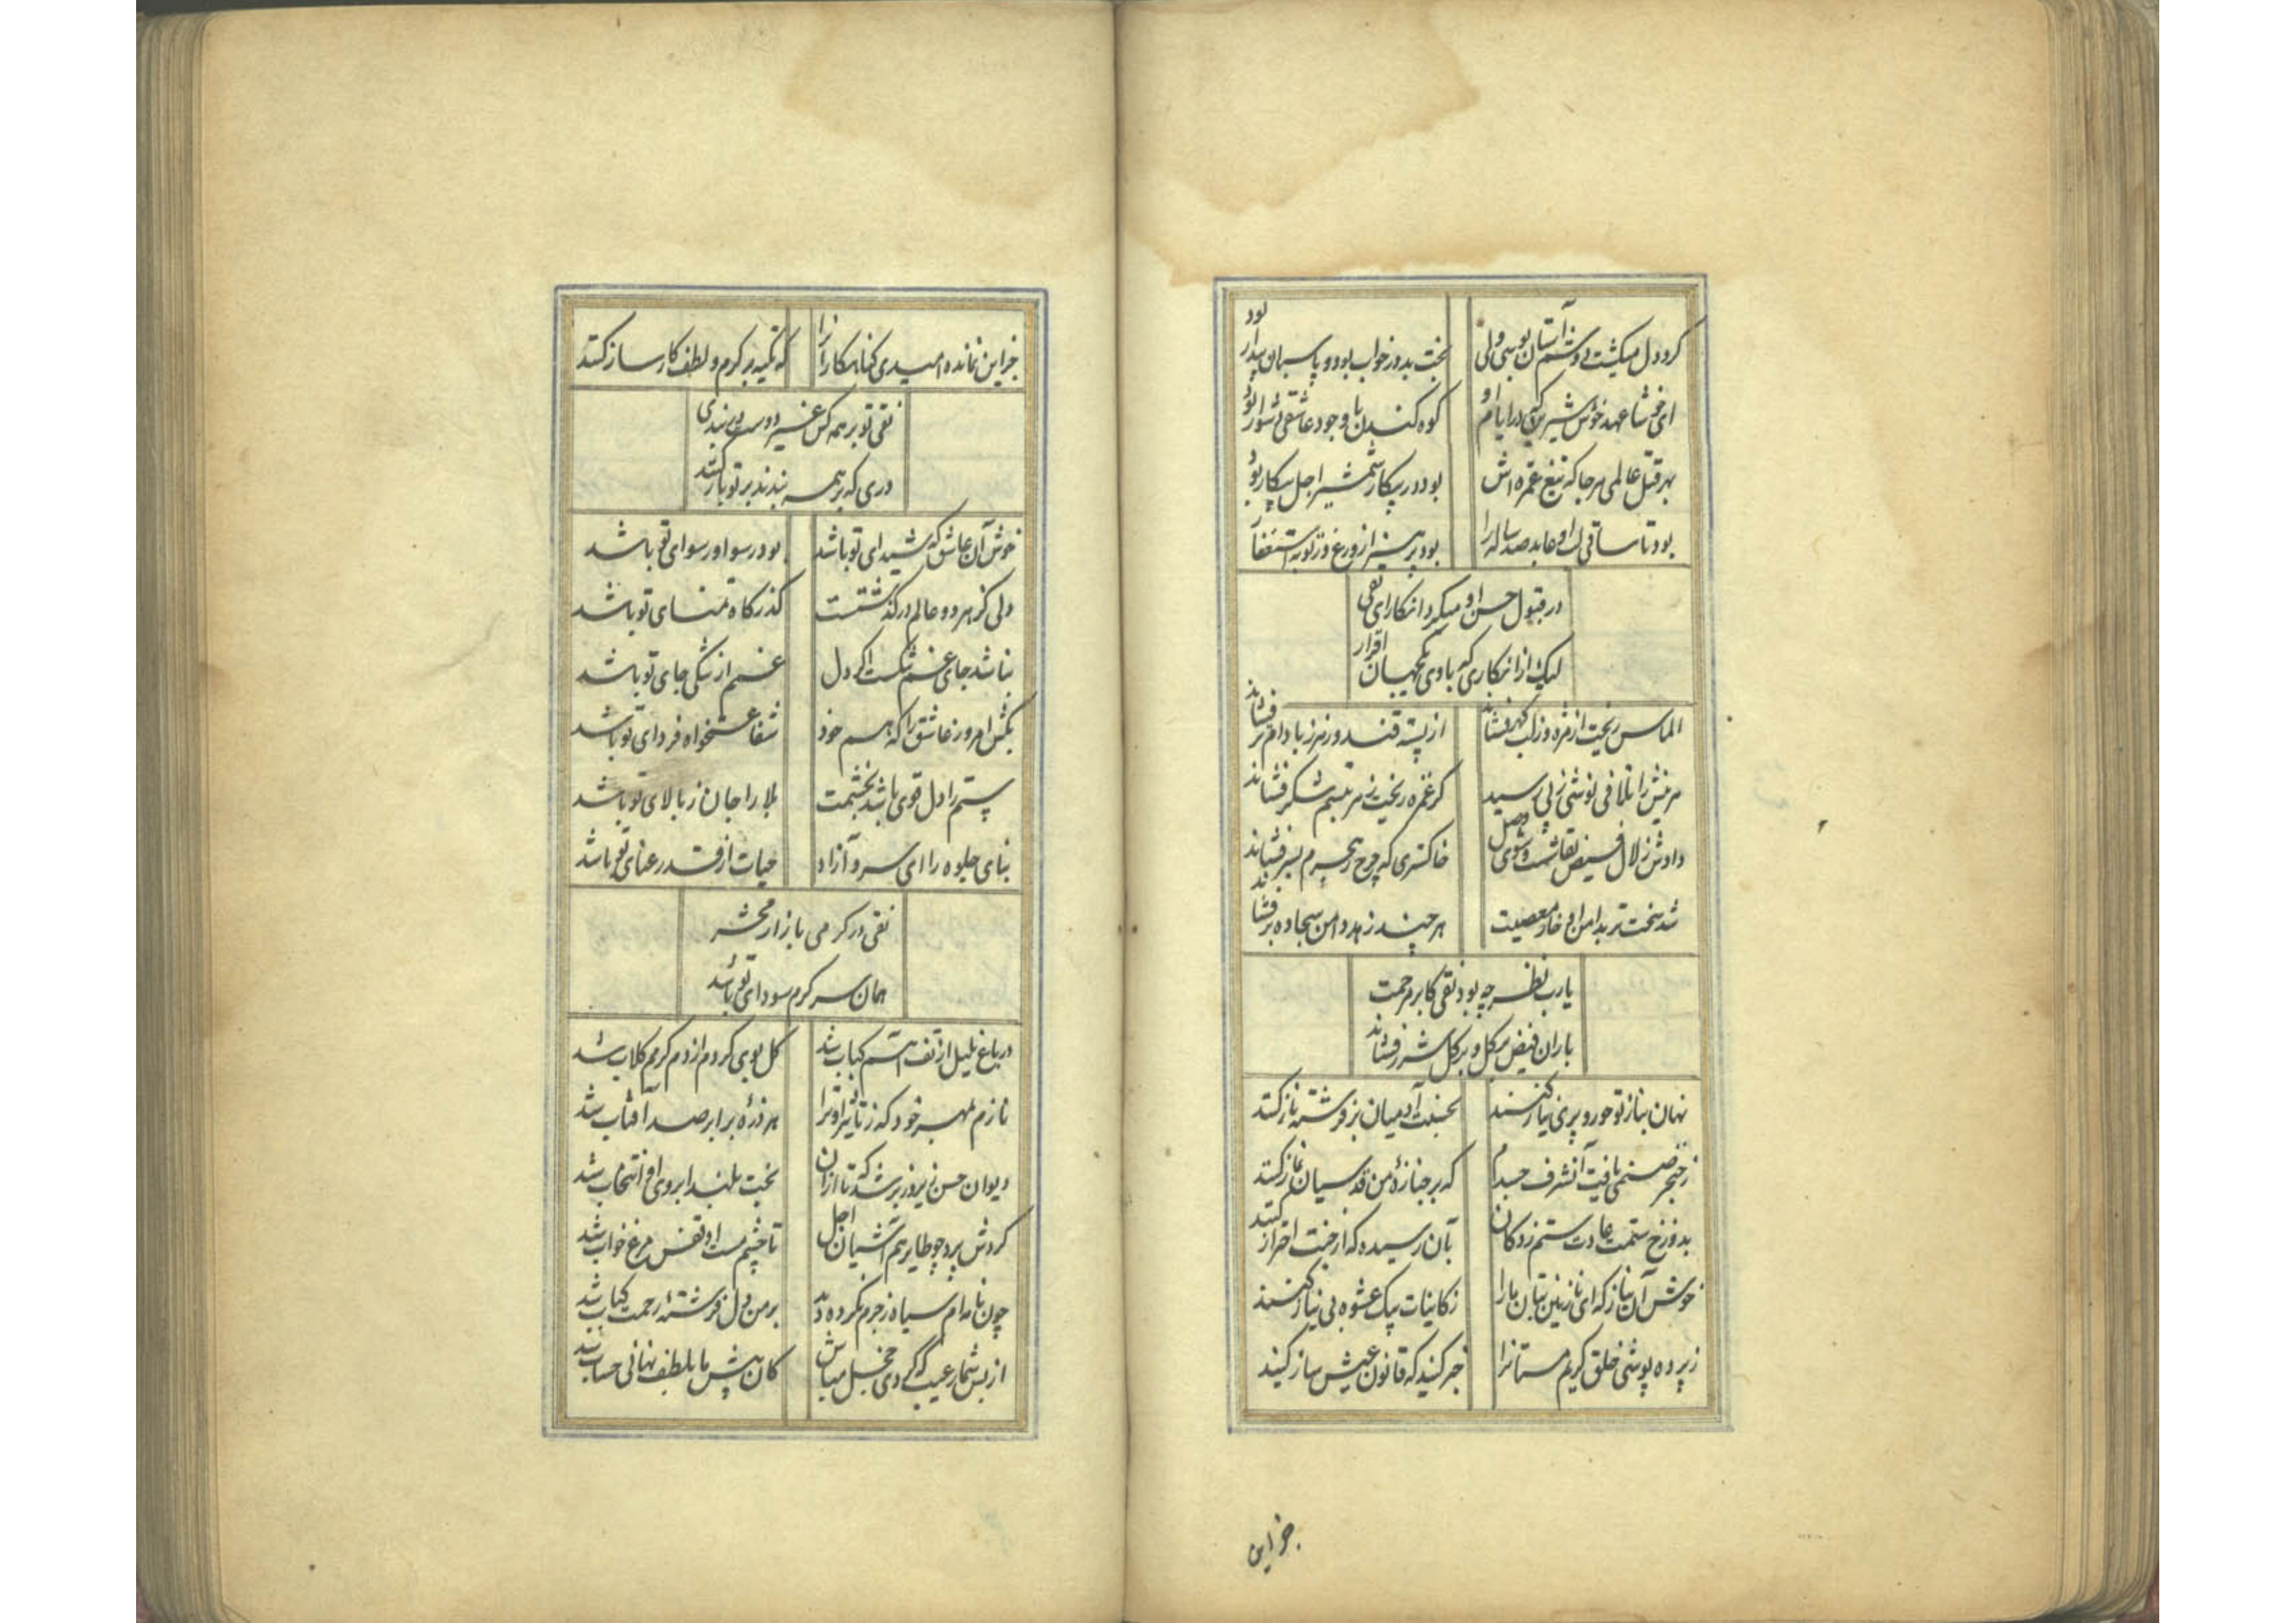 کرد دل میکشت دوشم آستان بوسی ولی بخت بد در خواب بود و پاسبان بیدار بود
ای خوشا عهد خوش شیرین که در ایام او کوه کندن با وجود عاشقی دشوار بود
بهر قتل عالمی هر جا که تیغ غمزه اش بود در پیکار شمشیر اجل بیکار بود
بود تا ساقی او عابد صد ساله را بود پرهیز از ورع وز توبه استغفار
در قبول حسن او میکرد انکار ای نقی
لیک از انکاری که با وی یکجهان اقرار
الماس ریخت از مژه وز لب گهر فشاند از پسته قند و زهر ز بادام تر فشاند
هر نیش را تلافی نوشی ز پی رسید گر غمزه ریخت زهر تبسم شکر فشاند
دادش زلال فیض بقا شست و شوی وصل خاکستری که چرخ ز هجرم بسر فشاند
شد سخت تر بدامن او خار معصیت هر چند زهد دامن سجاده بر فشاند
یارب نظر چه بود نقی کابر رحمت
باران فیض بر گل و بر گل شرر فشاند
نهان بناز تو حور و پری نیاز کنند بحسنت آدمیان بر فرشته ناز کنند
ز خنجر صنمی یافت آن شرف جسدم که بر جنازهٔ من قدسیان نماز کنند
بدوزخ ستمت عادت ستم زدگان بآن رسیده که از جنت احتراز کنند
خوش آن نیاز که ای نازنین بتان ما را ز کاینات بیک عشوه بی نیاز کنند
ز پرده پوشی خلق کریم مستانرا خبر کنید که قانون عیش ساز کنید
جز این
جز این نمانده امیدی گناهکارانرا که تکیه بر کرم و لطف کارساز کنند
نقی تو بر همه کس غیر دوست در بندی
دری که بر همه بندند بر تو باز کنند
خوش آن عاشق که شیدای تو باشد بود رسوا و رسوای تو باشد
دلی کز هر دو عالم در گذشتست گذرگاه تمنای تو باشد
نباشد جای غم تنگست اگر دل غمم از تنگی جای تو باشد
بکش امروز عاشق را که هم خود شفاعتخواه فردای تو باشد
ستم را دل قوی باشد بخشمت بلا را جان ز بالای تو باشد
بنای جلوه را ای سرو آزاد حیات از قد رعنای تو باشد
نقی در گرمی بازار محشر
همان سرگرم سودای تو باشد
در باغ بلبل از تف آهم کباب شد گل بوی کردم از دم گرمم گلاب شد
نازم بمهر خود که ز تاثیر او ترا هر ذره برابر صد آفتاب شد
دیوان حسن زیر و زبر شد که تا از آن بخت بلند ابروی او انتخاب شد
گردش پرد چو طایر هم آشیان اجل تا چشم مست او قفس مرغ خواب شد
چون نامه ام سیاه ز جرم نکرده دید بر من دل فرشتهٔ رحمت کباب شد
از بس شمار عیب که کردی خجل مباش کان پیش ما بلطف نهانی حساب شد